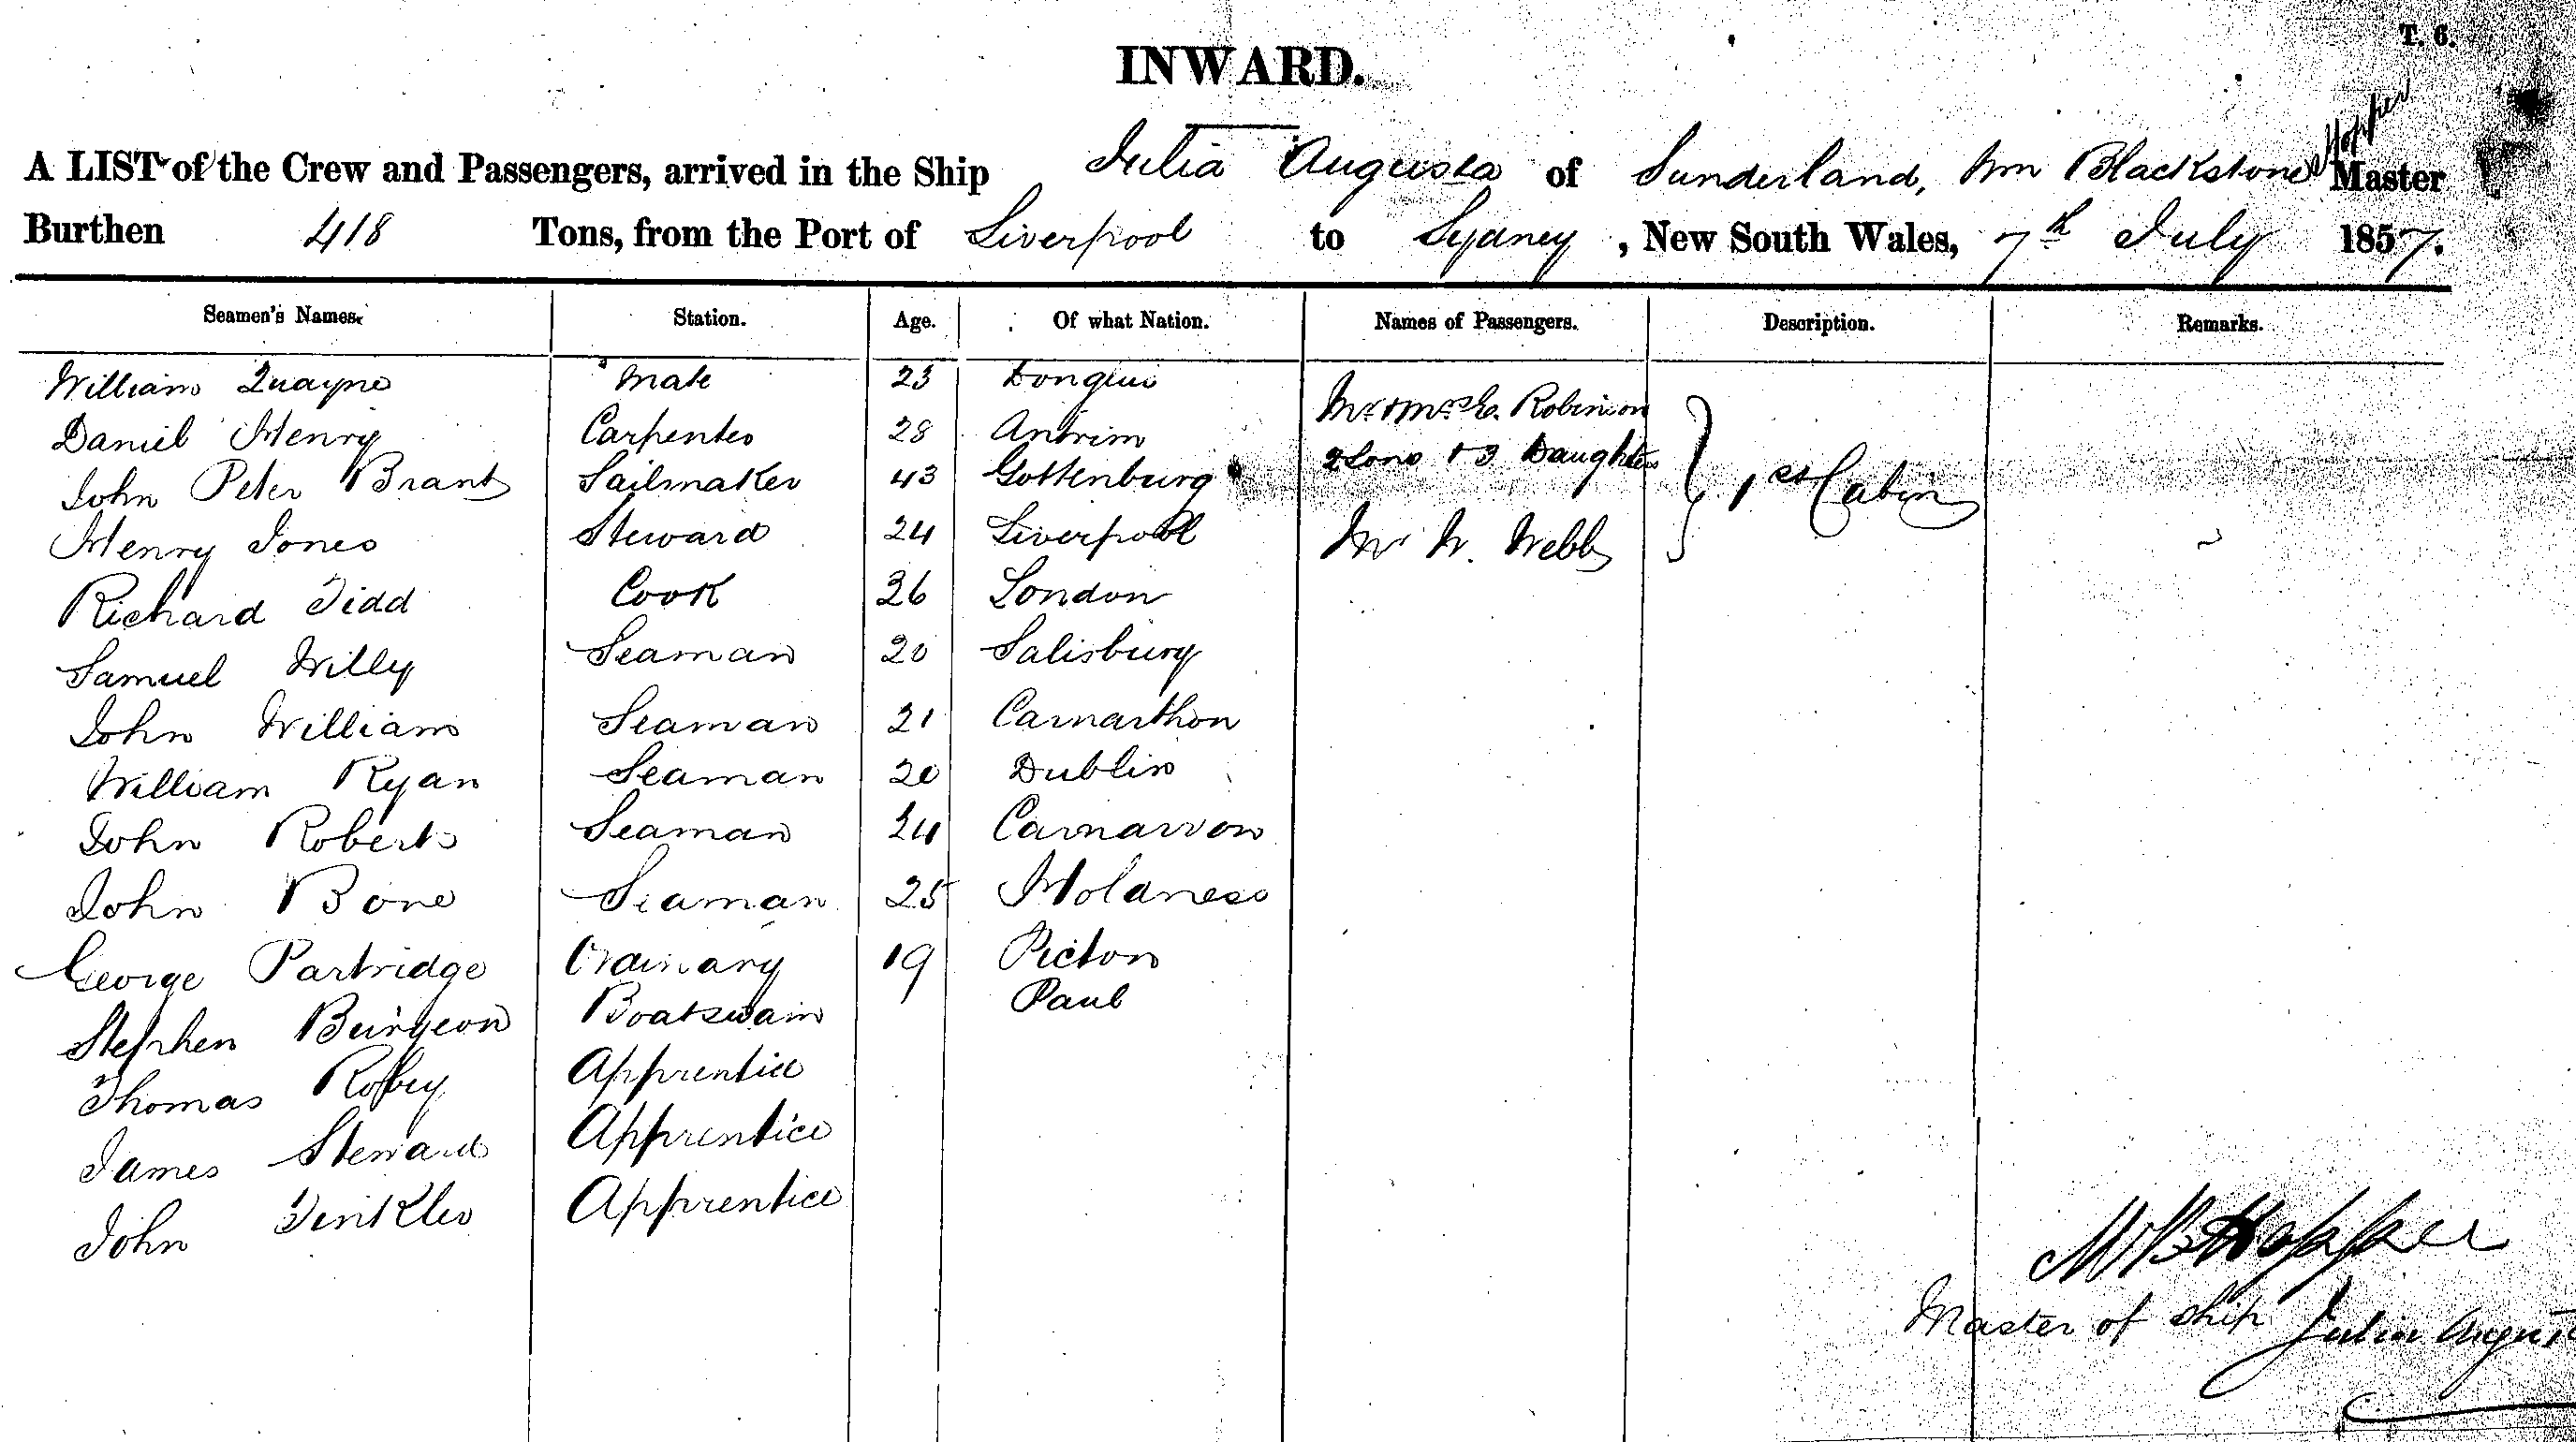 T. 6.
INWARD.
A LIST of the Crew and Passengers, arrived in the Ship Julia Augusta of Sunderland, Wm Blackstone Hopper Master
Burthen 418 Tons, from the Port of Liverpool to Sydney, New South Wales, 7th July 1857.
Seamen's Names. Station. Age. Of what Nation. Names of Passengers. Description. Remarks.
William Quayne Mate 23
Daniel Henry Carpenter 28 Antrim Mr & Mrs E. Robinson
John Peter Brant Sailmaker 43 Gottenburg 2 Sons & 3 Daughters 1st Cabin
Henry Jones Steward 24 Liverpool Mr W. Webb
Richard Tidd Cook 26 London
Samuel Willy Seaman 20 Salisbury
John William Seaman 21 Carnarthon
William Ryan Seaman 20 Dublin
John Roberts Seaman 24 Carnarvon
John Bone Seaman 25 Holdness
George Partridge Ordinary 19 Picton
Stephen Burgeon Boatswain Paul
Thomas Robey Apprentice
James Steward Apprentice
John Tinkler Apprentice
WB Hopper
Master of Ship Julia August